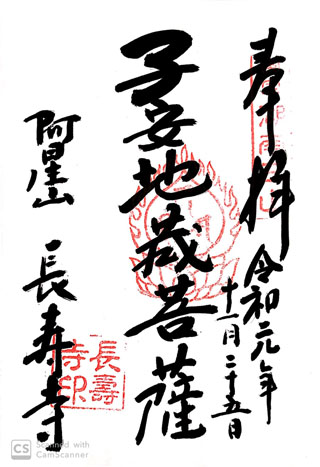 奉拝
令和元年
十一月二十五日
子安地蔵菩薩
阿星山
長寿寺
長壽
寺印
CS Scanned with
CamScanner